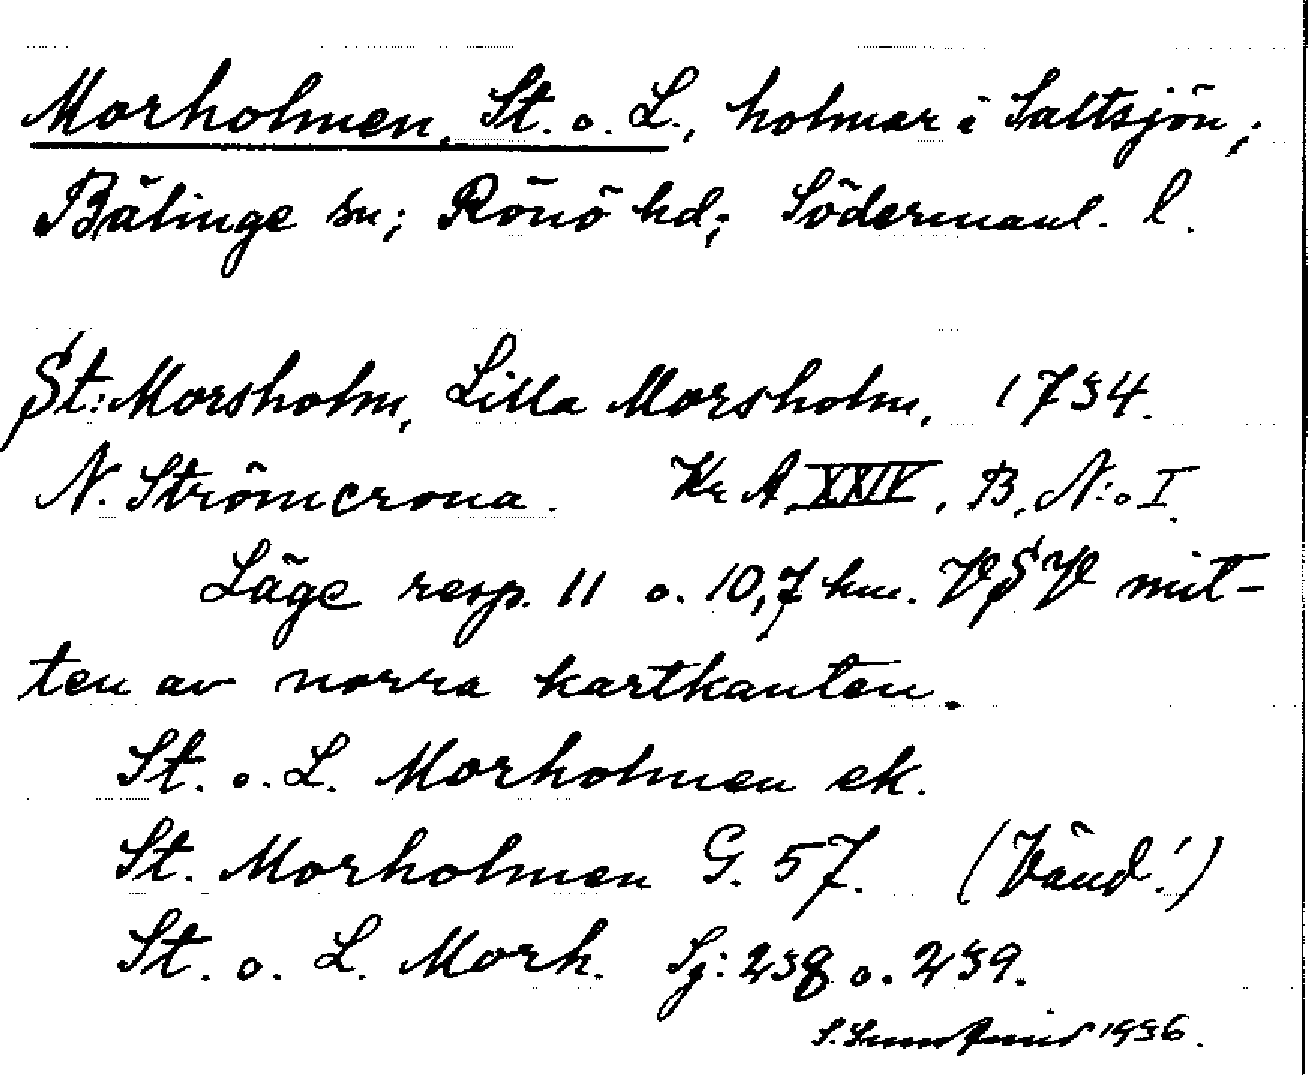 Morholmen, St. o. L., holmar i Saltsjön;
Bälinge sn; Rönö hd; Södermanl. l.
St: Morsholm, Lilla Morsholm, 1734.
N. Strömcrona. Kr A, XXIV, B, N:o I.
Läge resp. 11 o. 10,7 km. VSV mit-
ten av norra kartkanten.
St. o. L. Morholmen ek.
St. Morholmen G. 57. (Vänd!)
St. o. L. Morh. Sj: 238 o. 239.
1936.